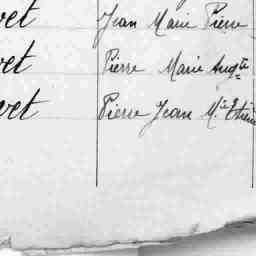 vet Jean Marie Pierre
vet Pierre Marie Augte
vet Pierre Jean Mie Etienne